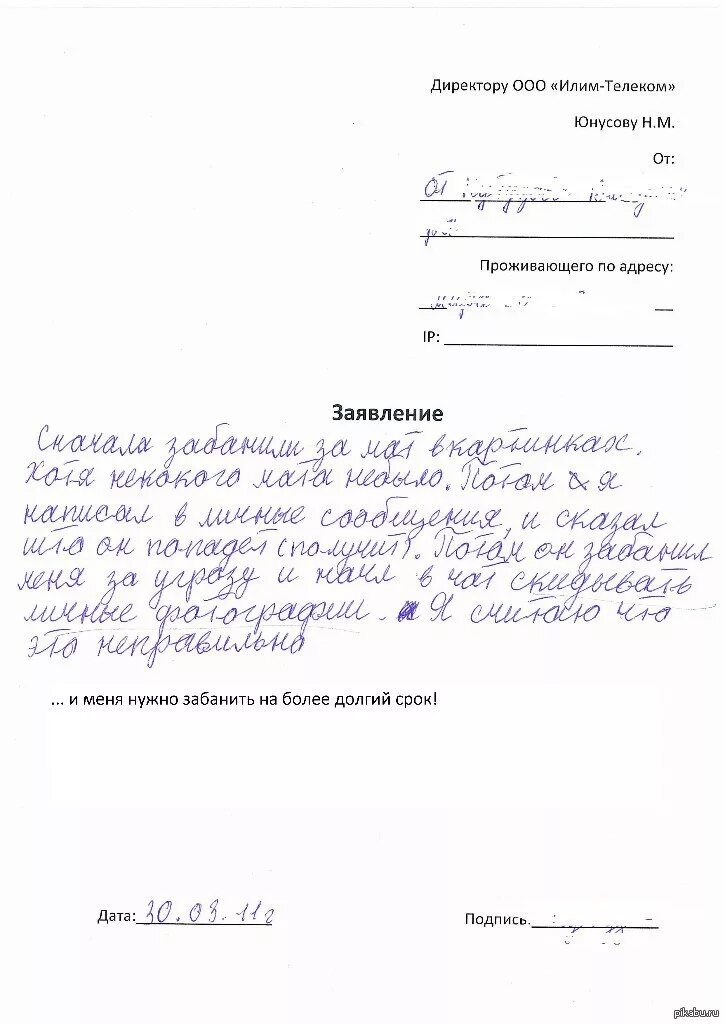 Директору ООО «Илим-Телеком»
Юнусову Н.М.
От:
От
Проживающего по адресу:
IP:
Заявление
Сначала забанили за мат в картинках.
Хотя некокого мата небыло. Потом я
написал в личные сообщения, и сказал
што он попадет (получит). Потом он забанил
меня за угрозу и начл в чат скидывать
личные фотографии. Я считаю что
это неправильно
... и меня нужно забанить на более долгий срок!
Дата: 30.03.11г
Подпись.
pikabu.ru